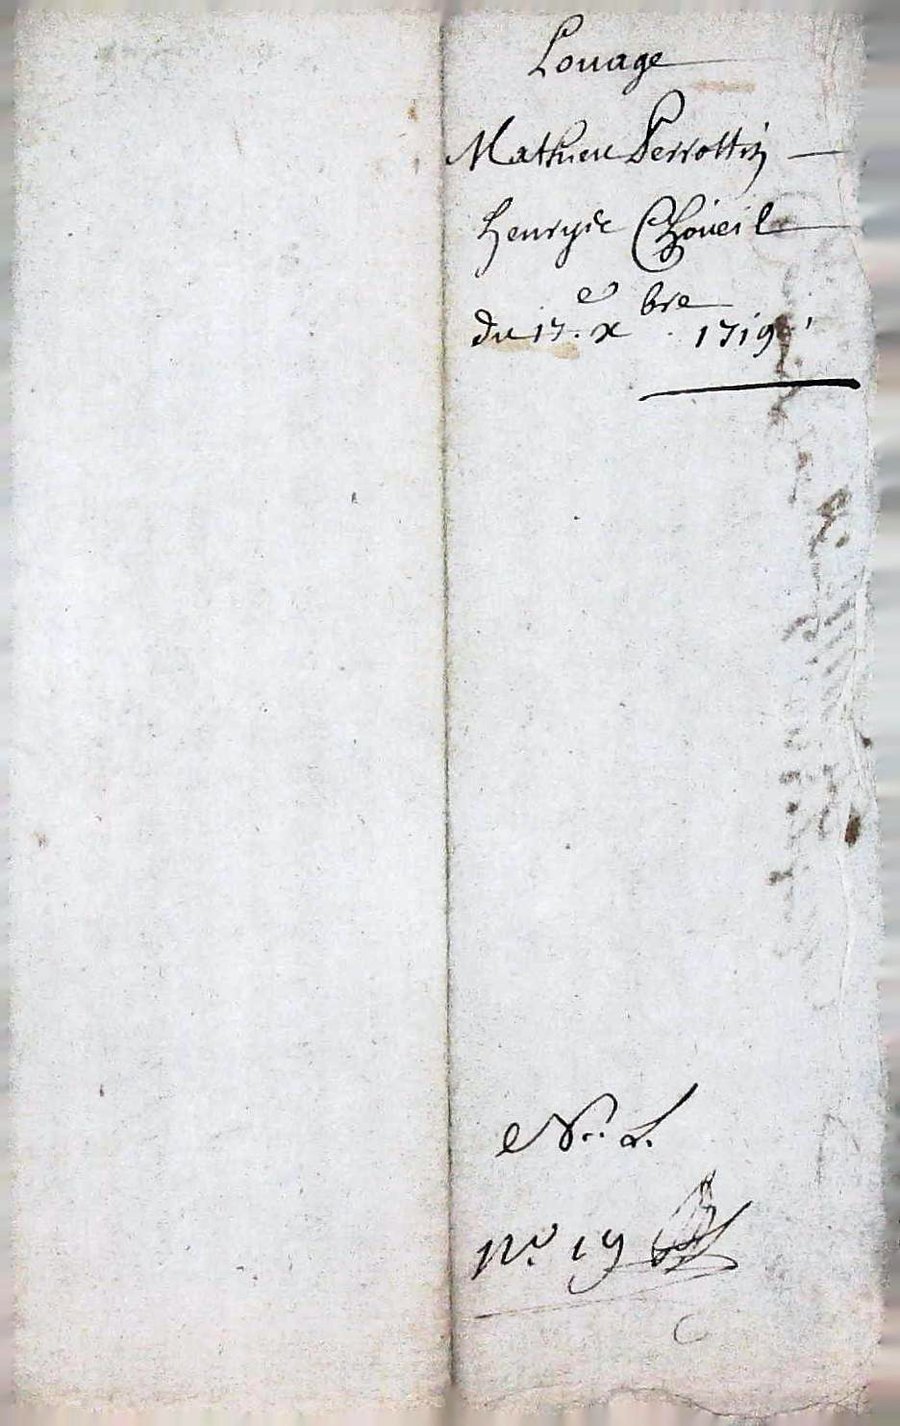 Louage
Mathieu Perrottin
henry de Choüeil
du 17.e xbre 1719
No. 19